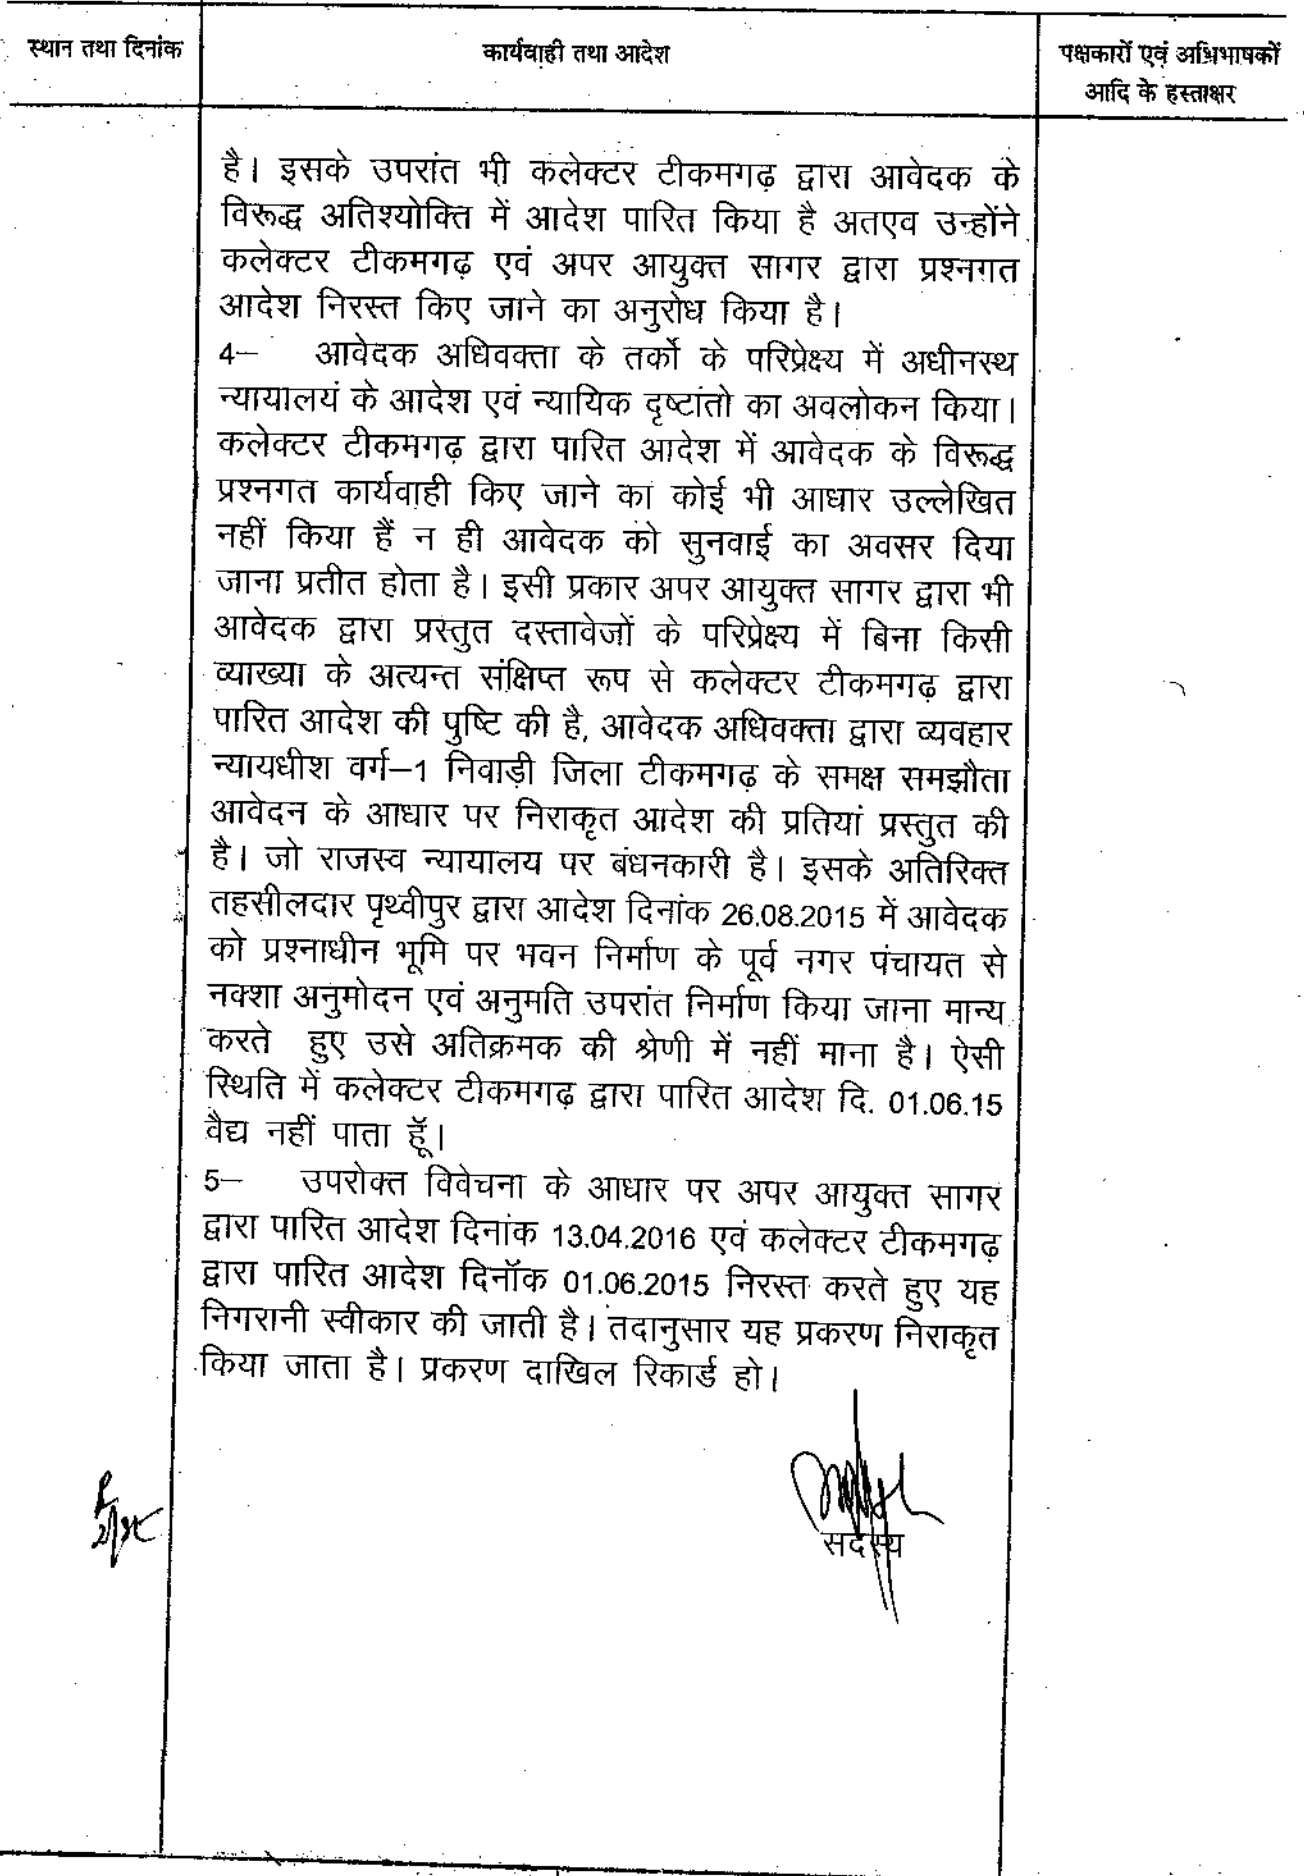 स्थान तथा दिनांक
कार्यवाही तथा आदेश
पक्षकारों एवं अभिभाषकों
आदि के हस्ताक्षर
है। इसके उपरांत भी कलेक्टर टीकमगढ़ द्वारा आवेदक के
विरूद्ध अतिश्योक्ति में आदेश पारित किया है अतएव उन्होंने
कलेक्टर टीकमगढ़ एवं अपर आयुक्त सागर द्वारा प्रश्नगत
आदेश निरस्त किए जाने का अनुरोध किया है।
4– आवेदक अधिवक्ता के तर्को के परिप्रेक्ष्य में अधीनस्थ
न्यायालयं के आदेश एवं न्यायिक दृष्टांतो का अवलोकन किया।
कलेक्टर टीकमगढ़ द्वारा पारित आदेश में आवेदक के विरूद्ध
प्रश्नगत कार्यवाही किए जाने का कोई भी आधार उल्लेखित
नहीं किया हैं न ही आवेदक को सुनवाई का अवसर दिया
जाना प्रतीत होता है। इसी प्रकार अपर आयुक्त सागर द्वारा भी
आवेदक द्वारा प्रस्तुत दस्तावेजों के परिप्रेक्ष्य में बिना किसी
व्याख्या के अत्यन्त संक्षिप्त रूप से कलेक्टर टीकमगढ़ द्वारा
पारित आदेश की पुष्टि की है, आवेदक अधिवक्ता द्वारा व्यवहार
न्यायधीश वर्ग–1 निवाड़ी जिला टीकमगढ़ के समक्ष समझौता
आवेदन के आधार पर निराकृत आदेश की प्रतियां प्रस्तुत की
है। जो राजस्व न्यायालय पर बंधनकारी है। इसके अतिरिक्त
तहसीलदार पृथ्वीपुर द्वारा आदेश दिनांक 26.08.2015 में आवेदक
को प्रश्नाधीन भूमि पर भवन निर्माण के पूर्व नगर पंचायत से
नक्शा अनुमोदन एवं अनुमति उपरांत निर्माण किया जाना मान्य
करते हुए उसे अतिक्रमक की श्रेणी में नहीं माना है। ऐसी
स्थिति में कलेक्टर टीकमगढ़ द्वारा पारित आदेश दि. 01.06.15
वैद्य नहीं पाता हूॅं।
5– उपरोक्त विवेचना के आधार पर अपर आयुक्त सागर
द्वारा पारित आदेश दिनांक 13.04.2016 एवं कलेक्टर टीकमगढ़
द्वारा पारित आदेश दिनॉक 01.06.2015 निरस्त करते हुए यह
निगरानी स्वीकार की जाती है। तदानुसार यह प्रकरण निराकृत
किया जाता है। प्रकरण दाखिल रिकार्ड हो।
सदस्य